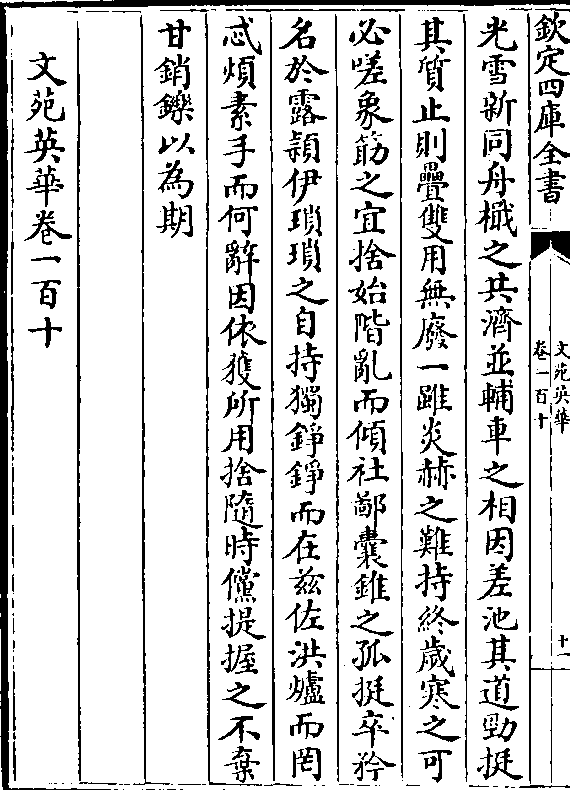 欽定四庫全書
文苑英華
卷一百十
十一
光雪新同舟檝之共濟並輔車之相因差池其道勁挺
其質止則疊雙用無廢一雖炎赫之難持終歲寒之可
必嗟象筯之宜捨始階亂而傾社鄙囊錐之孤挺卒矜
名於露穎伊瑣瑣之自持獨錚錚而在茲佐洪爐而罔
忒煩素手而何辭因依獲所用捨隨時儻提握之不棄
甘銷鑠以為期
文苑英華卷一百十